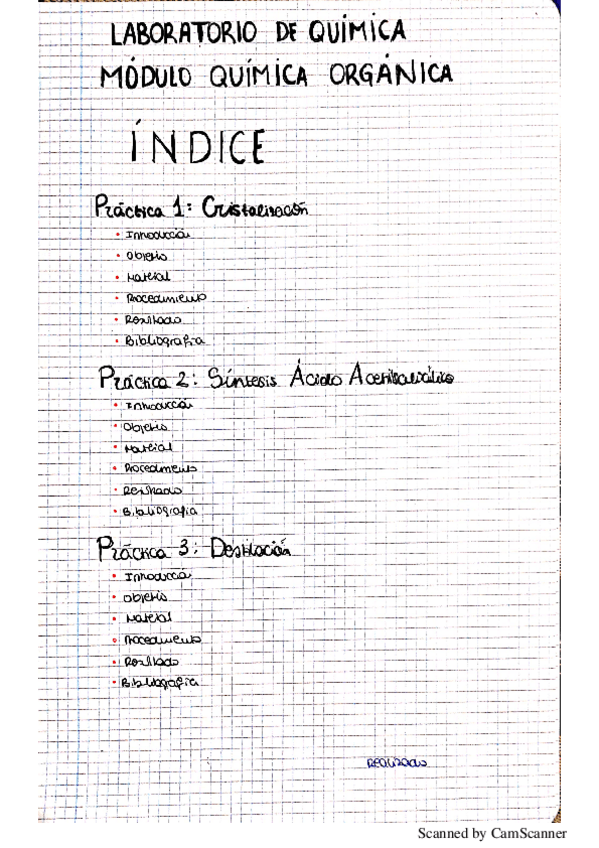 LABORATORIO DE QUÍMICA
MÓDULO QUÍMICA ORGÁNICA
ÍNDICE
Práctica 1: Cristalización
• Introducción
• Objetivo
• Material
• Procedimiento
• Resultado
• Bibliografía
Práctica 2: Síntesis Ácido Acetilsalicílico
• Introducción
• Objetivo
• Material
• Procedimiento
• Resultado
• Bibliografía
Práctica 3: Destilación
• Introducción
• Objetivo
• Material
• Procedimiento
• Resultado
• Bibliografía
REALIZADO
Scanned by CamScanner